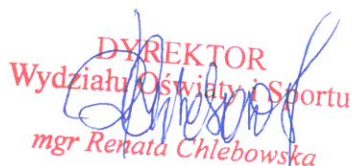 DYREKTOR
Wydziału Oświaty i Sportu
mgr Renata Chlebowska